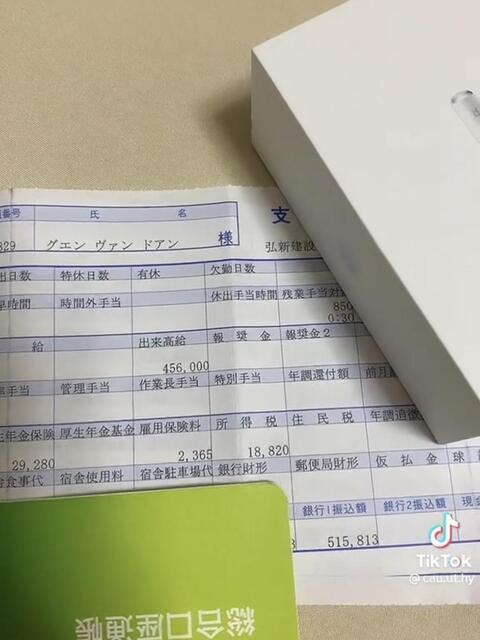 番号 氏 名 支
829 グエン ヴァン ドアン 様 弘新建設
出日数 特休日数 有休 欠勤日数
時間 時間外手当 休出手当時間 残業手当対
850
0:30
給 出来高給 報 奨 金 報奨金2
456,000
手当 管理手当 作業長手当 特別手当 年調還付額 前月
年金保険 厚生年金基金 雇用保険料 所 得 税 住 民 税 年調追徴
29,280 2,365 18,820
食事代 宿舎使用料 宿舎駐車場代 銀行財形 郵便局財形 仮 払 金 球
銀行1振込額 銀行2振込額 現
515,813
総合口座通帳
TikTok
@cau.ut.hy